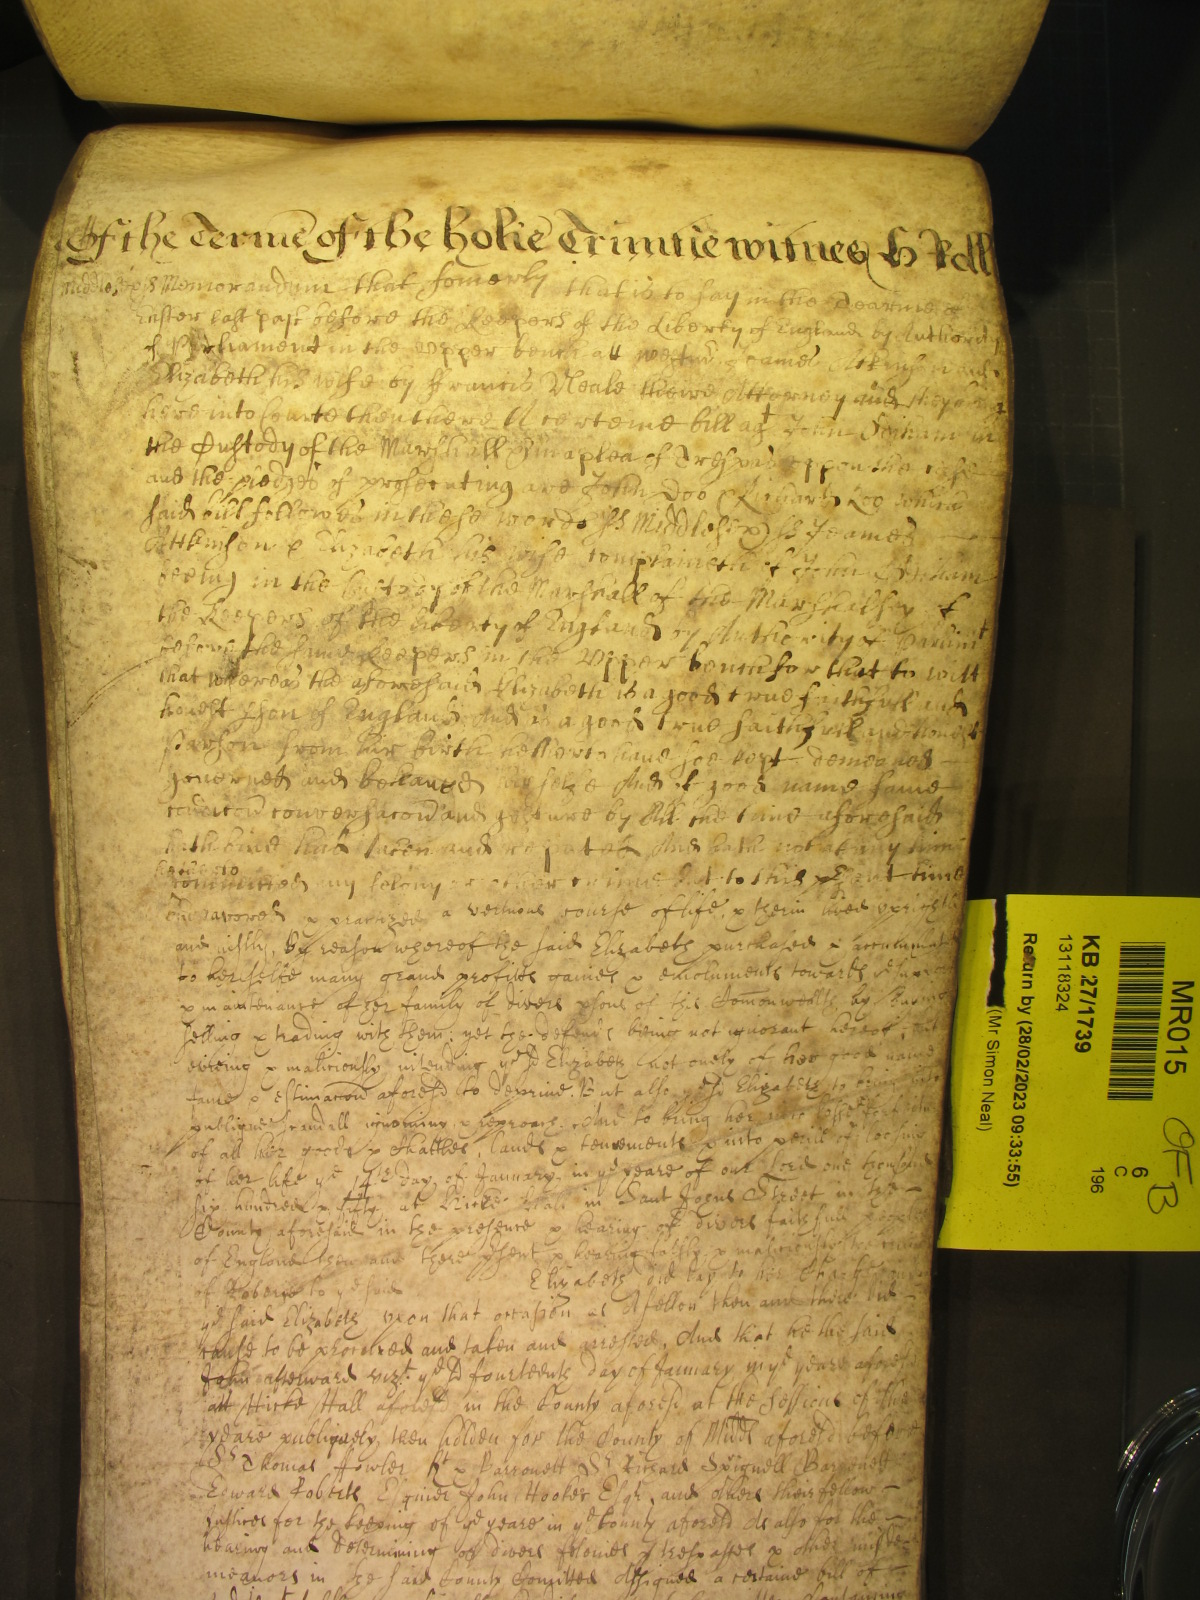 Of the Terme of the holie Trinitie witnes H Roll
Middlesex ss Memorandum that formerly that is to say in the Tearme of
Easter last past before the Keepers of the Liberty of England by Authority
of Parliament in the upper bench att Westmr Joames Atkinson and
Elizabeth his wife by Francis Neale theire Attorney and
here into Courte then there A certeine bill agt John in
the Custody of the Marshall &c in a plea of Trespas uppon the case
and the pledges of prosecuting are John Doo & Richard Roo which
said bill followes in these words ss Middlesex ss Joames
Attkinson & Elizabeth his wife complaineth of John
beeing in the Custody of the Marshall of the Marshallsey of
the Keepers of the liberty of England by Authority of Parliamt
before the same Keepers in the Upper bench for that to witt
that whereas the aforesaid Elizabeth is a good true faithfull and
honest pson of England and as a good true faithfull and honest
Parson from hir birth hitherto have hee kept demeaned
governed and behaved hir selfe And of good name fame
conversacon and gesture by All the time aforesaid
hath bine had taken and reputed And hath not at any time
hitherto
committed any felony or other crime but to this psent time
Endavored & practized a vertuous course of life & therin lived uprightly
and justly, By reason whereof the said Elizabeth purchased & accumulated
to herselfe many grand profitts gaines & emoluments towards ye support
& maintenance of her family of divers psons of this Comonwealth by buying
selling & trading with them: yet the Defendt being not ignorant hereof but
envieing & maliciously intending ye sd Elizabeth not onely of her good name
fame & estimacon aforesd to deprive. But also ye sd Elizabeth to bring into
publique scandall ignominy & reproach. And to bring her into
of all her goods & chattles, lands & tenements & into perill of loosing
of her life ye 14th day of January in ye yeare of our Lord one thousand
six hundred & fifty at Hicks Hall in Saint Johns Street in the
County aforesaid in the presence & hearing of divers faithfull people
of England then and there psent & hearing falsly & maliciously
of Roberie to ye said Elizabeth did lay to her Charge
ye said Elizabeth upon that occasion as A fellon then and there did
cause to be procured and taken and arrested. And that he the said
John afterward vizt ye sd fourteenth day of January in ye yeare aforesd
att Hicks Hall aforesd in the County aforesd at the Sessions of the
yeare publiquely then holden for the County of Midd aforesd before
Sr Thomas Fowler Kt & Barronett Sr Richard Spignell Barronett
Edward Roberts Esquier John Hooker Esqr and others their fellow
Justices for the keeping of ye yeare in ye County aforesd As also for the
hearing and determining of divers felonies trespasses & other misde=
meanors in the said County Comitted Assigned a certaine bill of
MR015
6
C
196
OFB
KB 27/1739
13118324
Return by (28/02/2023 09:33:55)
(Mr Simon Neal)